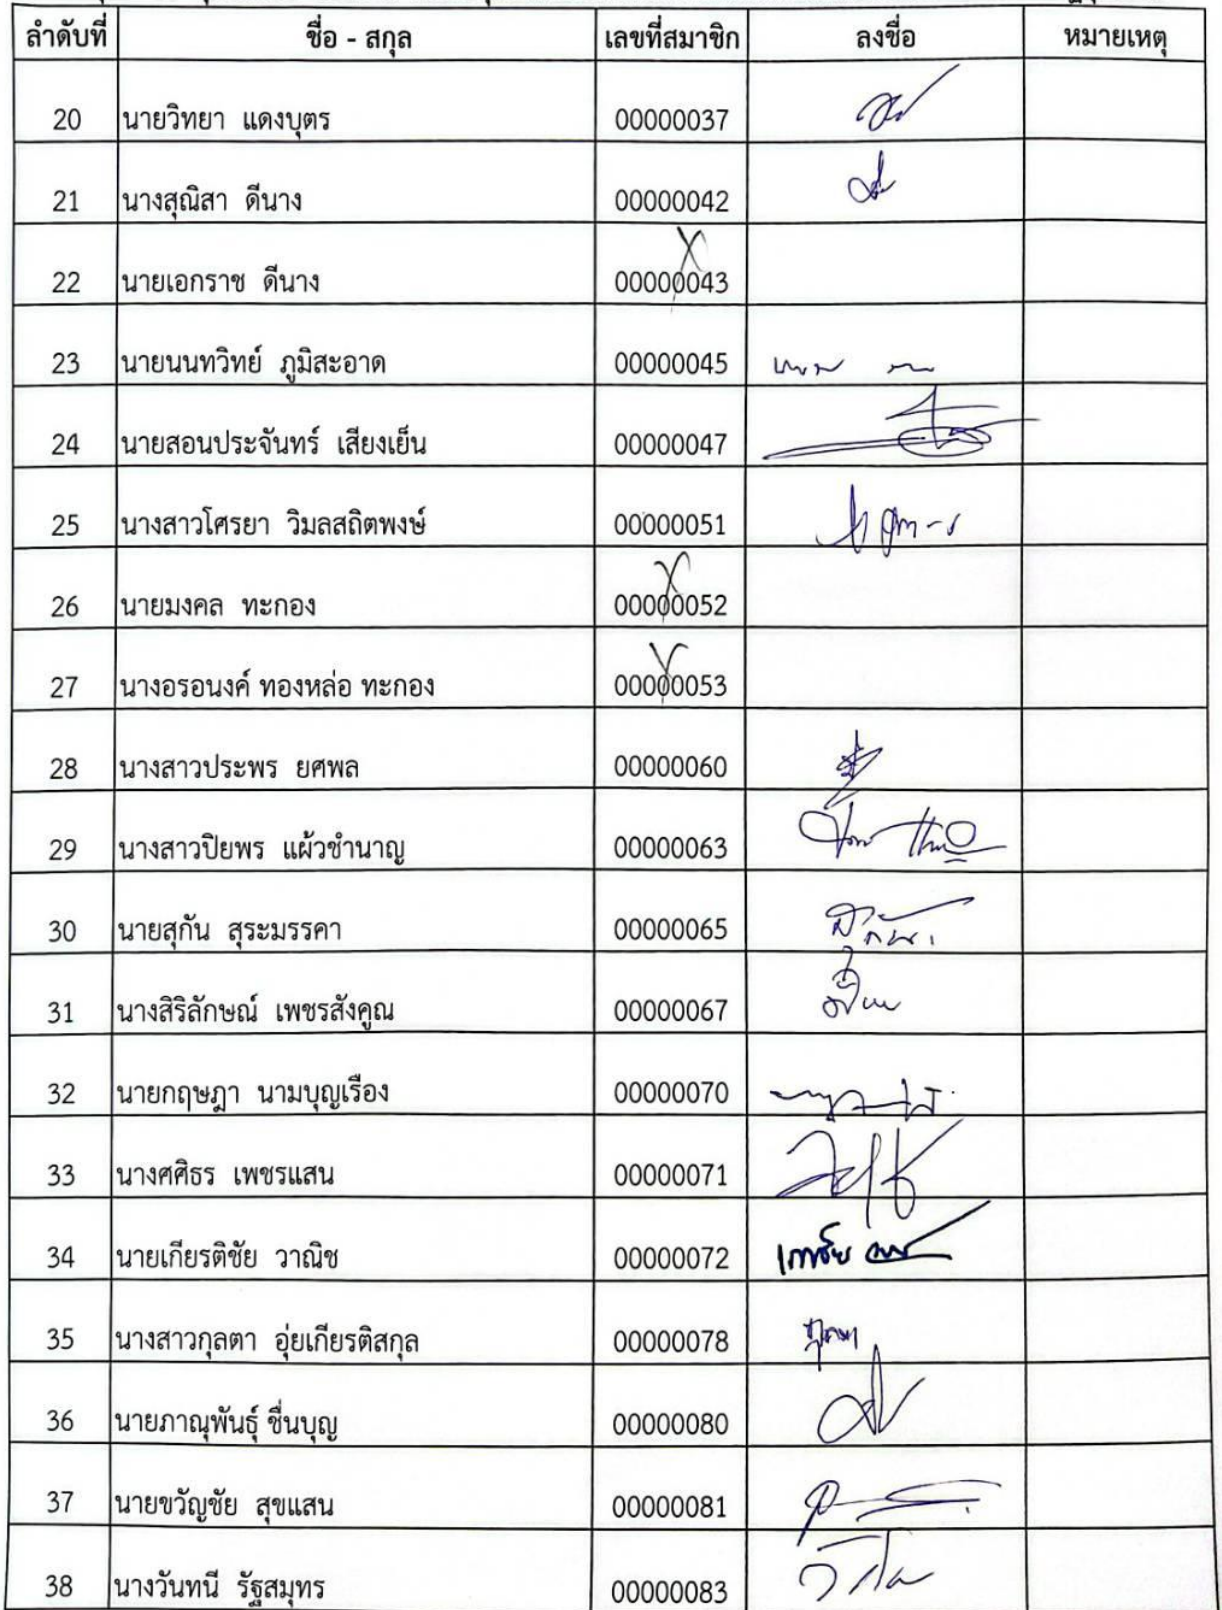 ลำดับที่ ชื่อ - สกุล เลขที่สมาชิก ลงชื่อ หมายเหตุ
20 นายวิทยา แดงบุตร 00000037
21 นางสุณิสา ดีนาง 00000042
22 นายเอกราช ดีนาง 00000043
23 นายนนทวิทย์ ภูมิสะอาด 00000045
24 นายสอนประจันทร์ เสียงเย็น 00000047
25 นางสาวโศรยา วิมลสถิตพงษ์ 00000051
26 นายมงคล ทะกอง 00000052
27 นางอรอนงค์ ทองหล่อ ทะกอง 00000053
28 นางสาวประพร ยศพล 00000060
29 นางสาวปิยพร แผ้วชำนาญ 00000063
30 นายสุกัน สุระมรรคา 00000065
31 นางสิริลักษณ์ เพชรสังคูณ 00000067
32 นายกฤษฎา นามบุญเรือง 00000070
33 นางศศิธร เพชรแสน 00000071
34 นายเกียรติชัย วาณิช 00000072
35 นางสาวกุลตา อุ่ยเกียรติสกุล 00000078
36 นายภาณุพันธุ์ ชื่นบุญ 00000080
37 นายขวัญชัย สุขแสน 00000081
38 นางวันทนี รัฐสมุทร 00000083